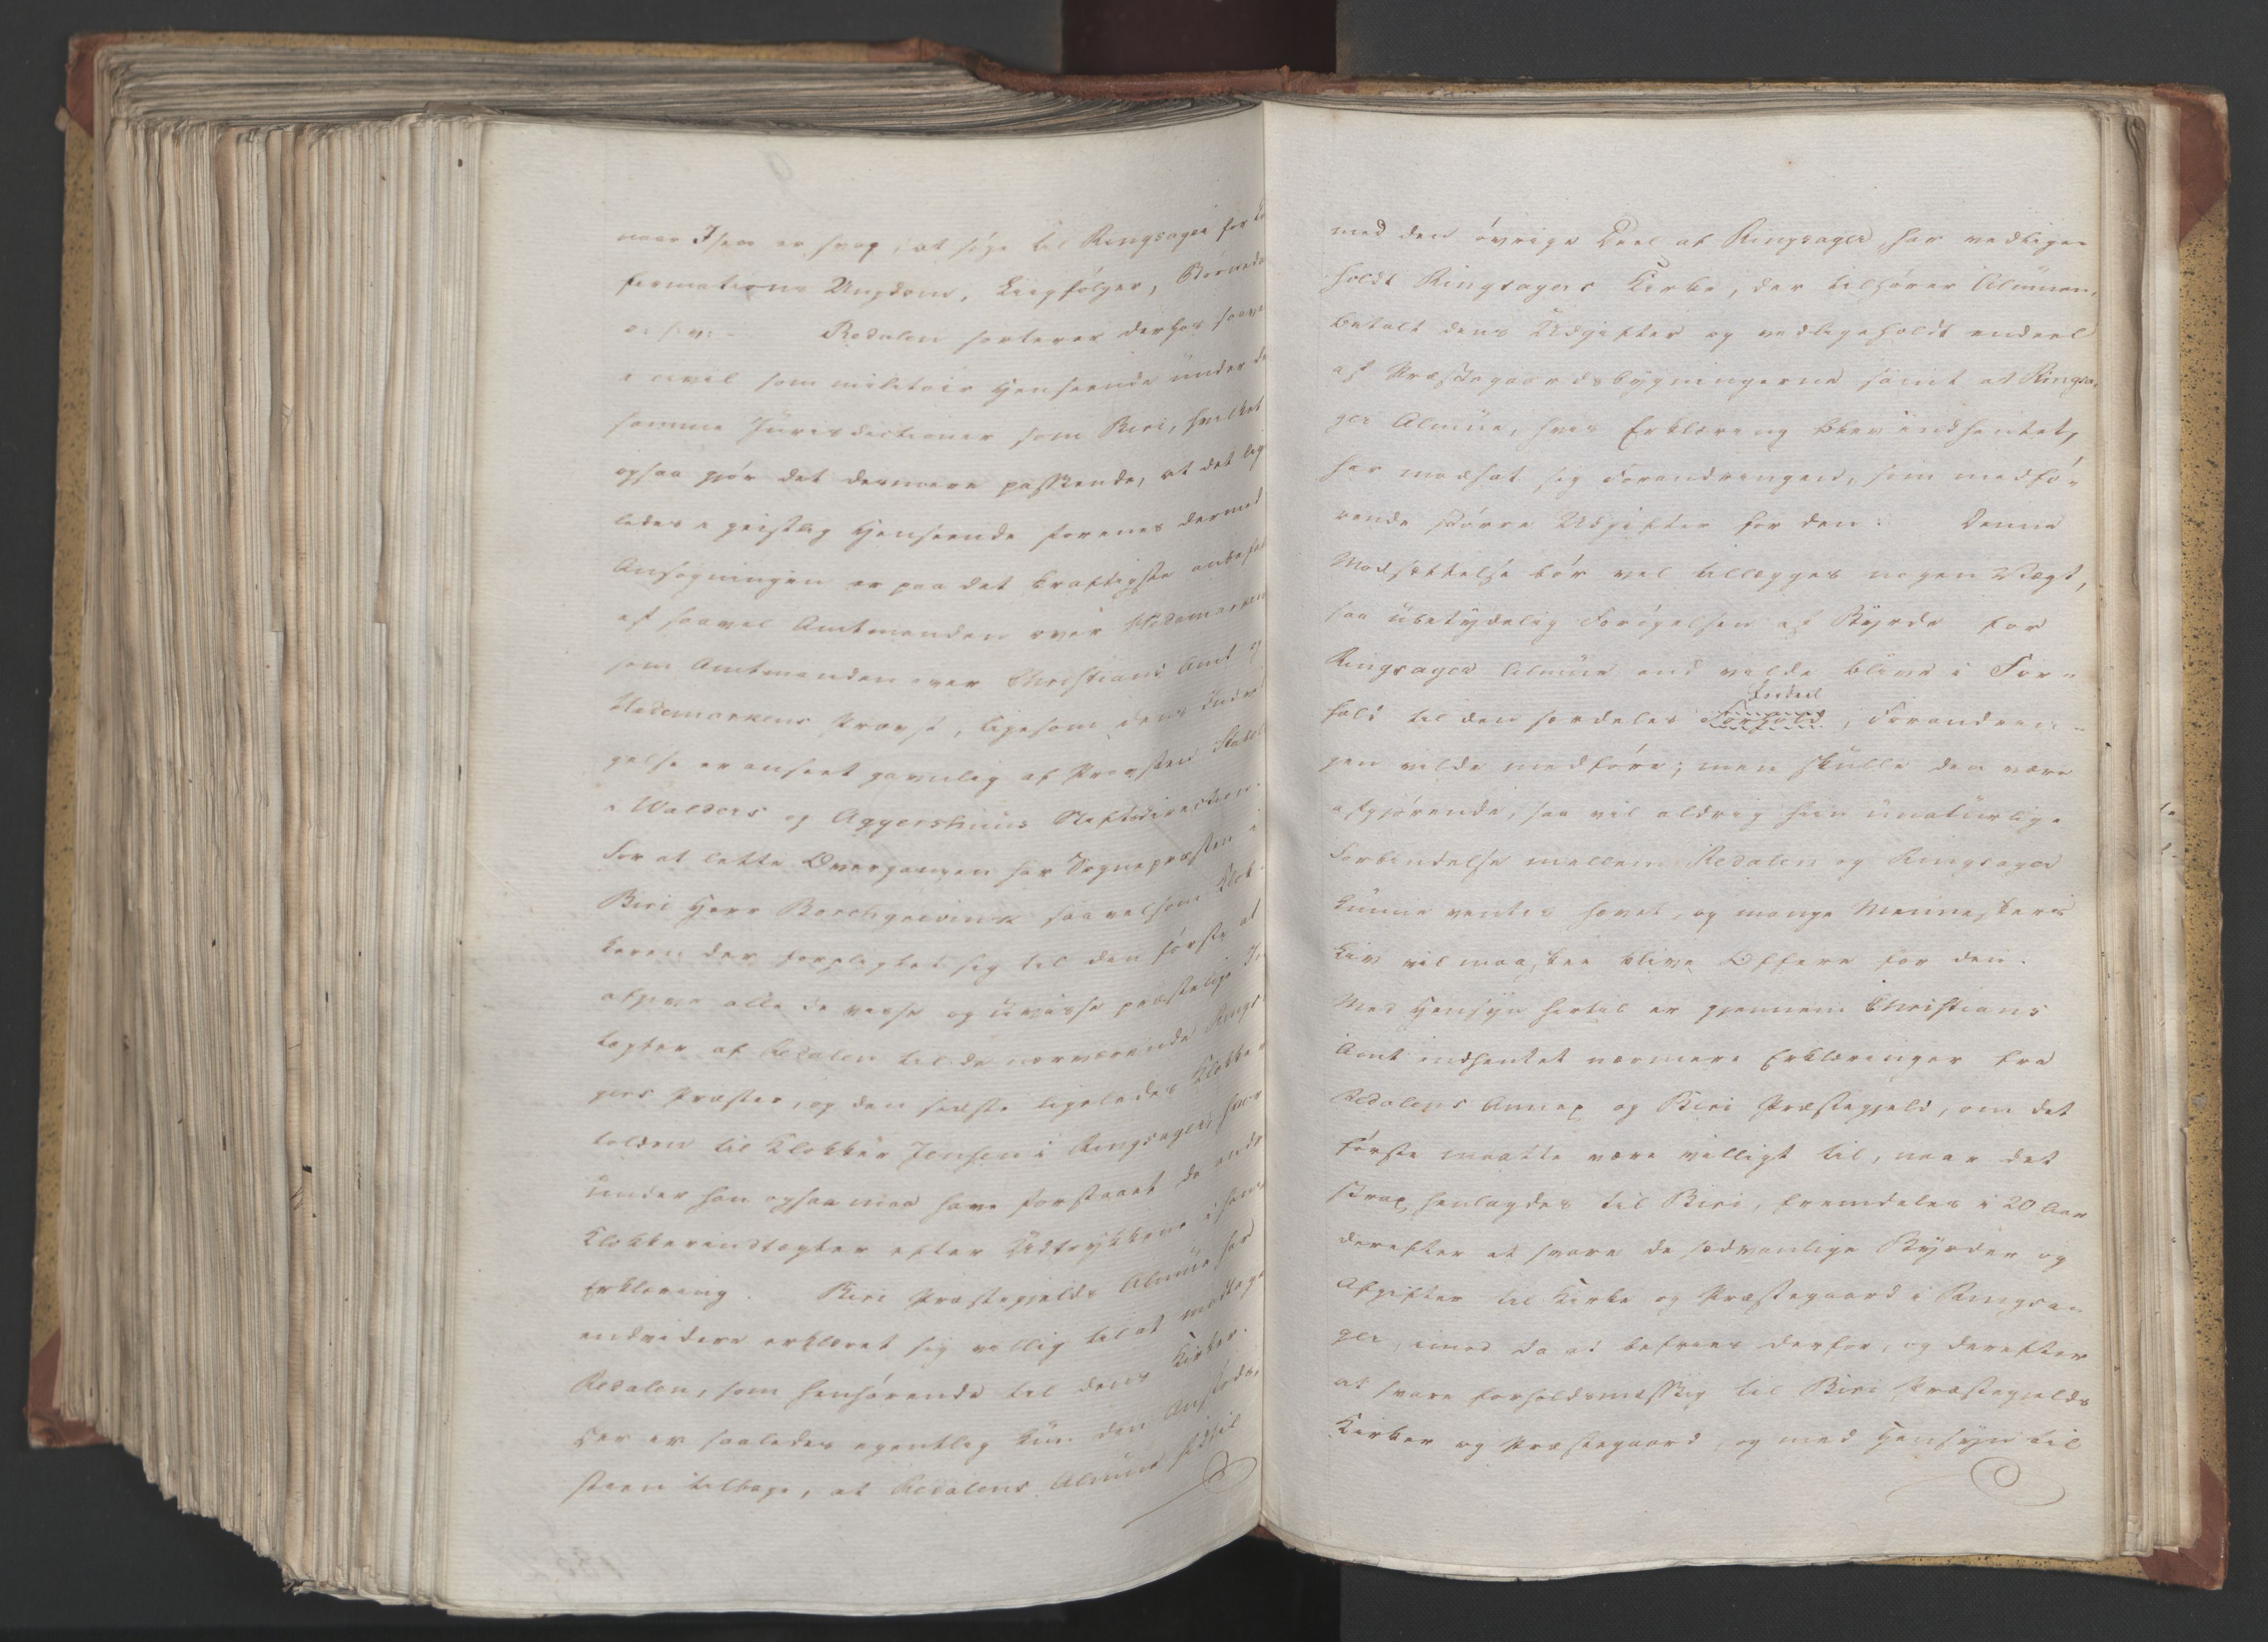 naar Isen er svag, at søge til Ringsager for Co
firmations Ungdom, Liigfølger, Børneda
o: s: v: — Redalen sorterer derhos saave
i civil som militair Henseende under de
samme Jurisdictioner som Biri, hvilket
ogsaa gjør det dermere passende, at det lig
ledes i geistlig Henseende forenes dermed
Ansøgningen er paa det kraftigste anbefal
af saavel Amtmanden over Hedemarken
som Amtmanden over Christians Amt og
Hedemarkens Provst, ligesom dens Indvil
gelse er anseet gavnlig af Provsten
i Walders og Aggershuus Stiftsdirection.
For at lette Overgangen har Sognepræsten i
Biri Herr Borchgrevink saavelsom Klok-
keren der forpligtet sig til den første at
afgive alle de visse og uvisse præstelige In
tægter af Redalen til de nærværende Ringsa
gers Præster, og den sidste ligeledes Klokker
tolden til Klokker Jensen i Ringsager, hvor
under han ogsaa maa have forstaaet de andre
Klokkerindtægter efter Udtrykkene i hans
Erklæring. Biri Præstegjelds Almue har
endvidere erklæret sig villig til at modtage
Redalen, som henhørende til dens Kirker.
Her er saaledes egentlig kun den Anstøds-
steen tilbage, at Redalens Almue hidtil
med den øvrige Deel af Ringsager har vedlige-
holdt Ringsagers Kirke, der tilhører Almuen,
betalt dens Udgifter og vedligeholdt endeel
af Præstegaardsbygningerne samt at Ringsa-
ger Almue, hvis Erklæring blev indhentet,
har modsat sig Forandringen, som medfø-
rende større Udgifter for den: Denne
Modsættelse bør vel tillægges nogen Vægt,
saa ubetydelig Forøgelsen af Byrde for
Ringsager Almue end vilde blive i For-
hold til den særdeles Fordeel Forhold, Forandrin-
gen vilde medføre; men skulle den være
afgjørende, saa vil aldrig hiin unaturlige
Forbindelse mellem Redalen og Ringsager
kunne ventes hævet, og mange Menneskers
Liv vil maaskee blive Offere for den.
Med Hensyn hertil er gjennem Christians
Amt indhentet nærmere Erklæringer fra
Redalens Annex og Biri Præstegjeld, om det
første maatte være villigt til, naar det
strax henlagdes til Biri, fremdeles i 20 Aar
derefter at svare de sædvanlige Byrder og
Afgifter til Kirke og Præstegaard i Ringsa-
ger, imod da at befries derfor, og derefter
at svare forholdsmæssig til Biri Præstegjelds
Kirker og Præstegaard, og med Hensyn til